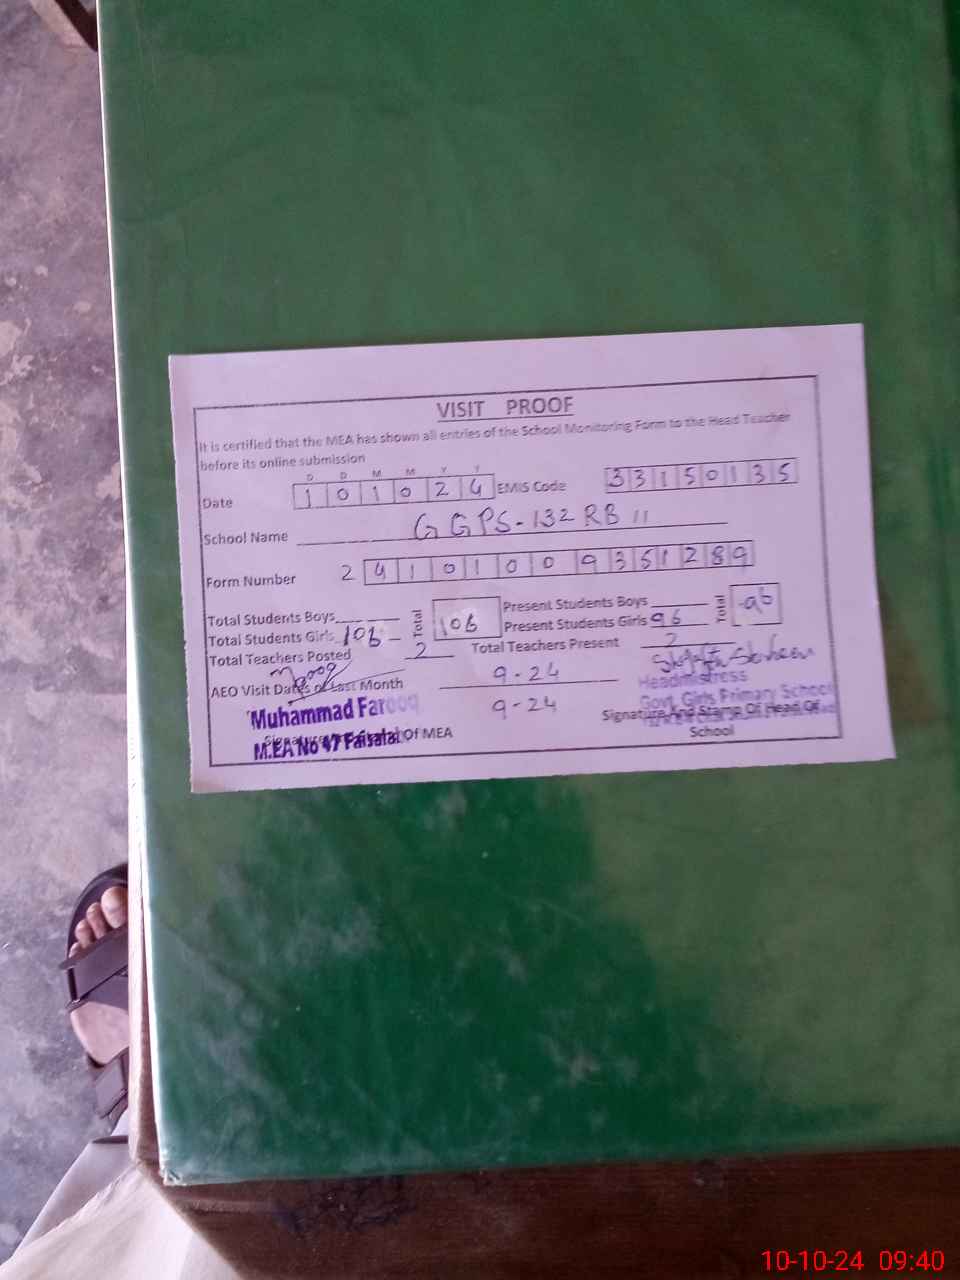 VISIT PROOF
It is certified that the MEA has shown all entries of the School Monitoring Form to the Head Teacher
before its online submission
D D M M Y Y
Date 1 0 1 0 2 4 EMIS Code 3 3 1 5 0 1 3 5
School Name GGPS-132 RB II
Form Number 2 4 1 0 1 0 0 9 3 5 1 2 8 9
Total Students Boys Total 106 Present Students Boys Total 96
Total Students Girls 106 Present Students Girls 96
Total Teachers Posted 2 Total Teachers Present 2
AEO Visit Dates of Last Month 9-24
9-24
Headmistress
Govt. Girls Primary School
Muhammad Farooq
Signature And Stamp Of Head Of
School
M.EA No 47 Faisalabad
Of MEA
10-10-24 09:40